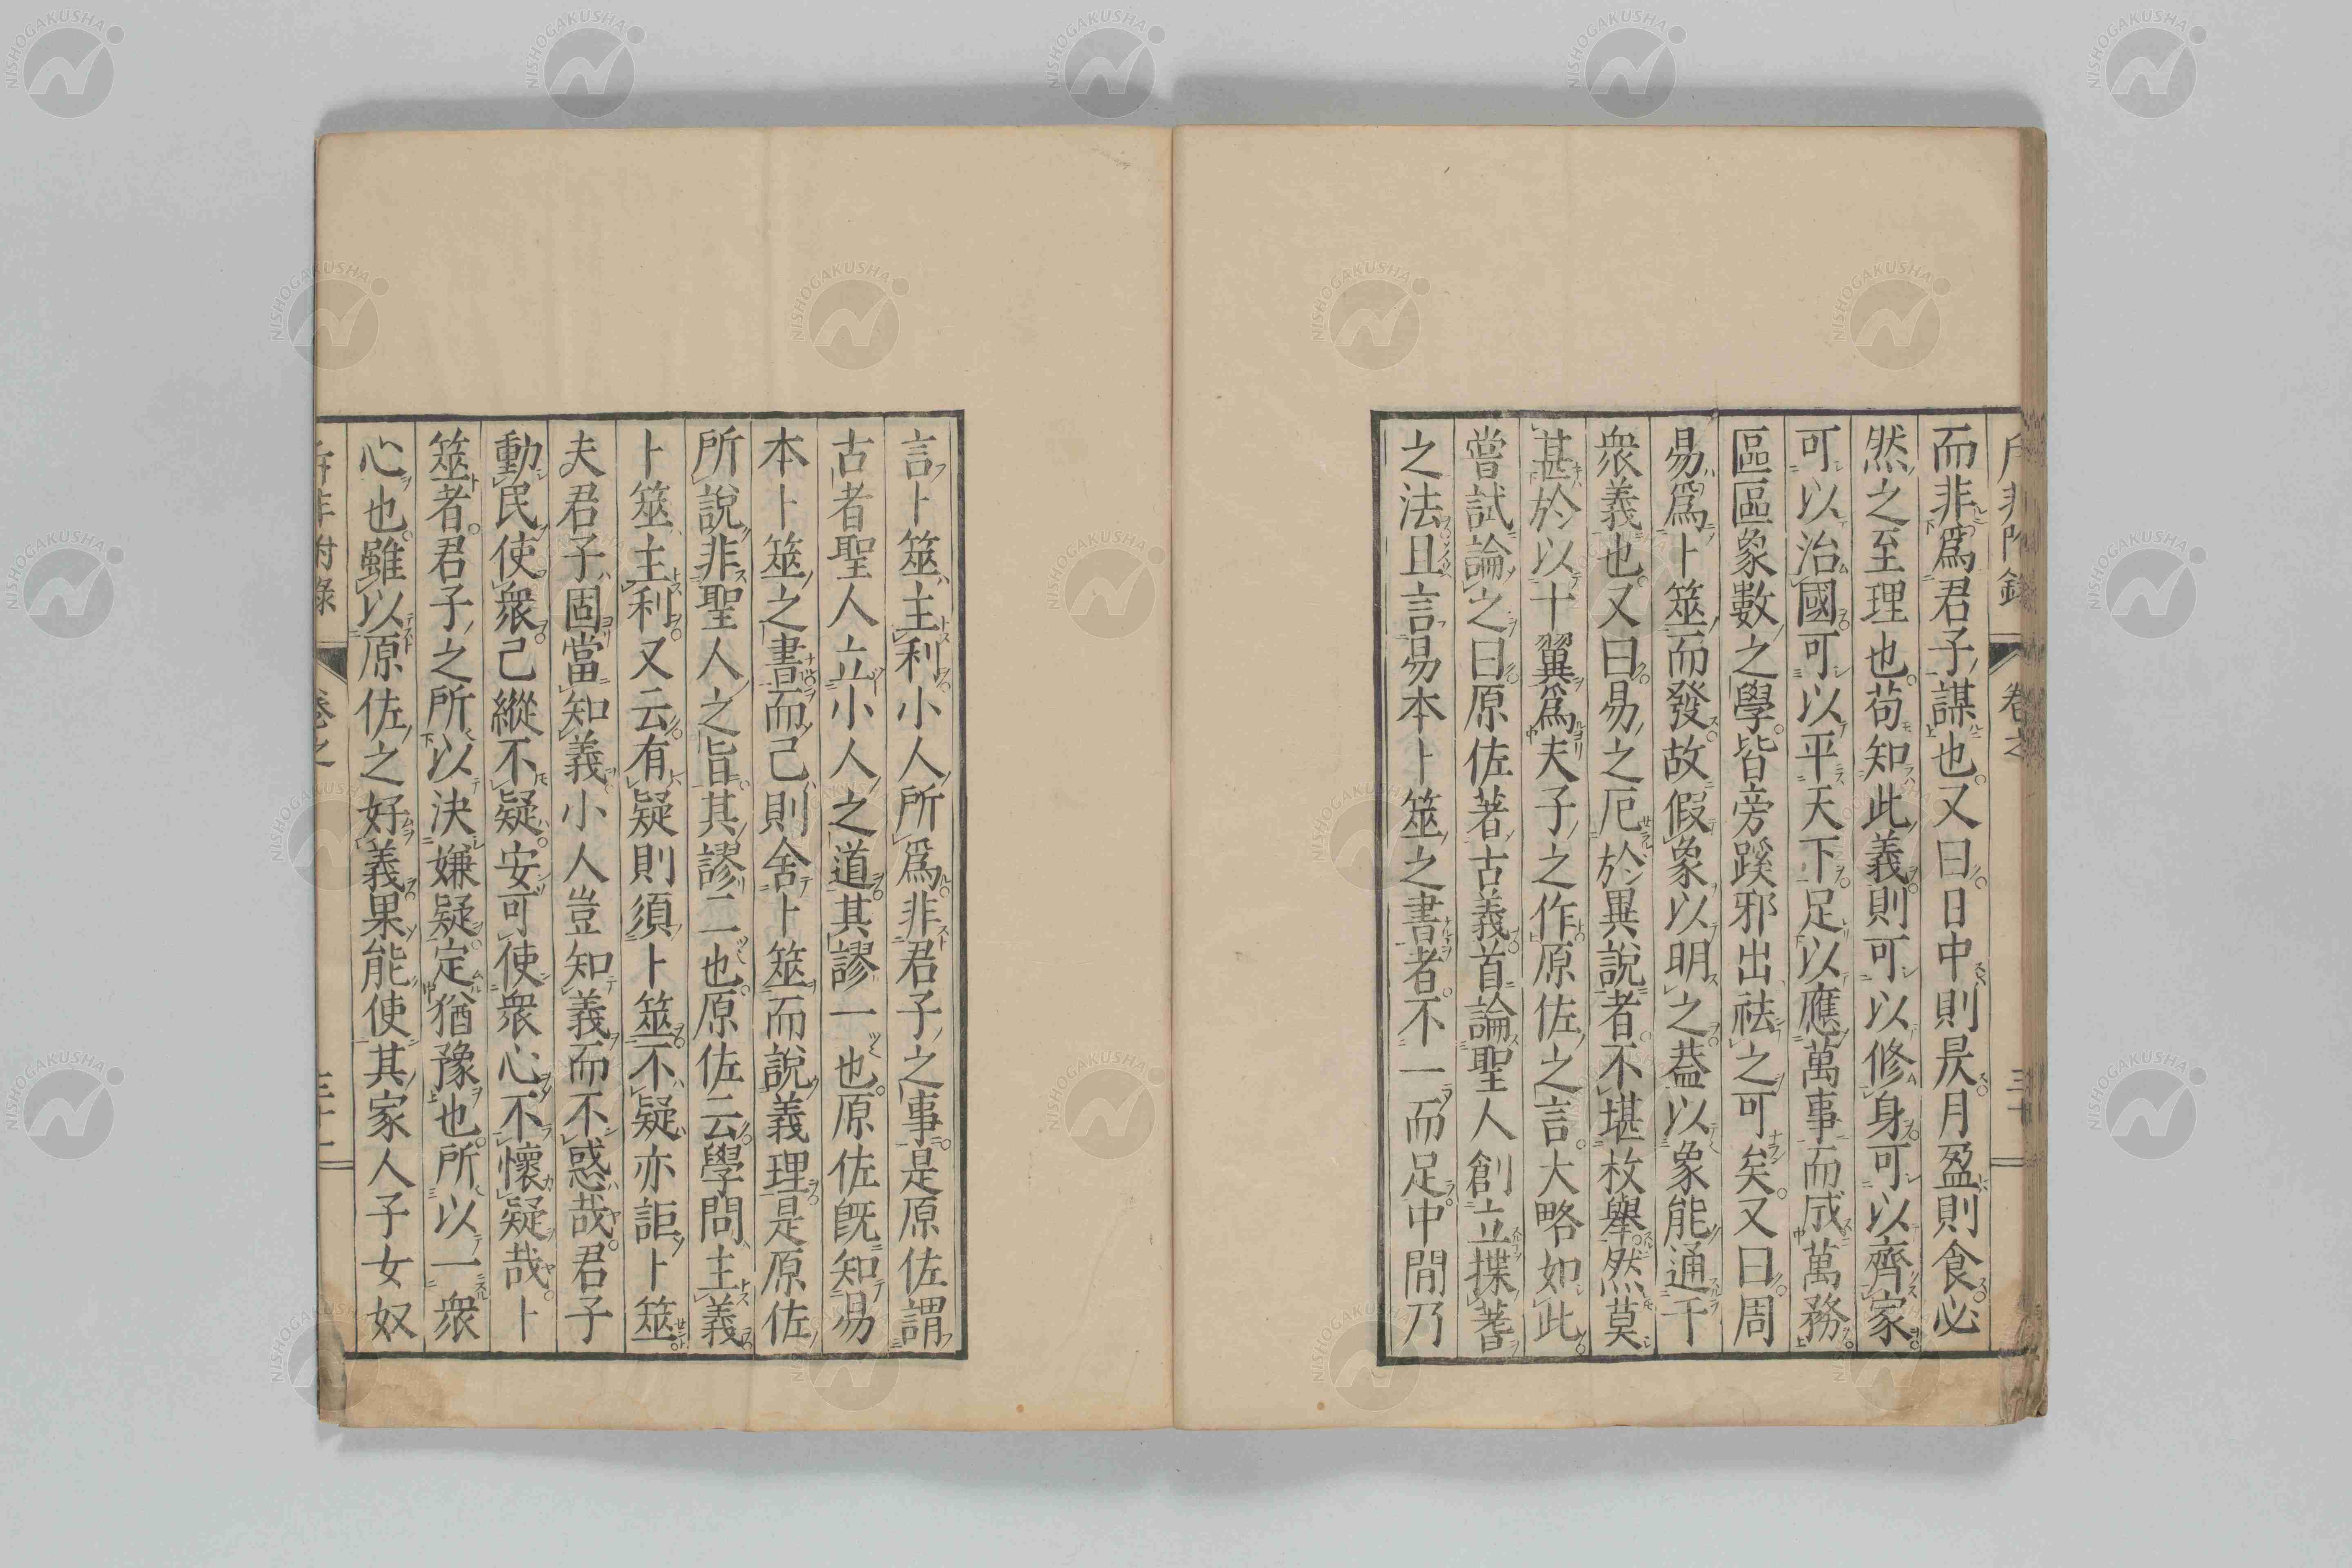 而非爲君子謀也又曰日中則昃月盈則食必
然之至理也苟知此義則可以修身可以齊家
可以治國可以平天下足以應萬事而成萬務
區區象數之學皆旁蹊邪出祛之可矣又曰周
易爲卜筮而發故假象以明之葢以象能通于
衆義也又曰易之厄於異說者不堪枚舉然莫
甚於以十翼爲夫子之作原佐之言大略如此
嘗試論之曰原佐著古義首論聖人創立揲蓍
之法且言易本卜筮之書者不一而足中間乃
言卜筮主利小人所爲非君子之事是原佐謂
古者聖人立小人之道其謬一也原佐旣知易
本卜筮之書而己則舍卜筮而說義理是原佐
所說非聖人之旨其謬二也原佐云學問主義
卜筮主利又云有疑則須卜筮不疑亦詎卜筮
夫君子固當知義小人豈知義而不惑哉君子
動民使衆己縱不疑安可使衆心不懷疑哉卜
筮者君子之所以決嫌疑定猶豫也所以一衆
心也雖以原佐之好義果能使其家人子女奴
卷之 三十
附錄 卷之 三十一
NISHOGAKUSHA